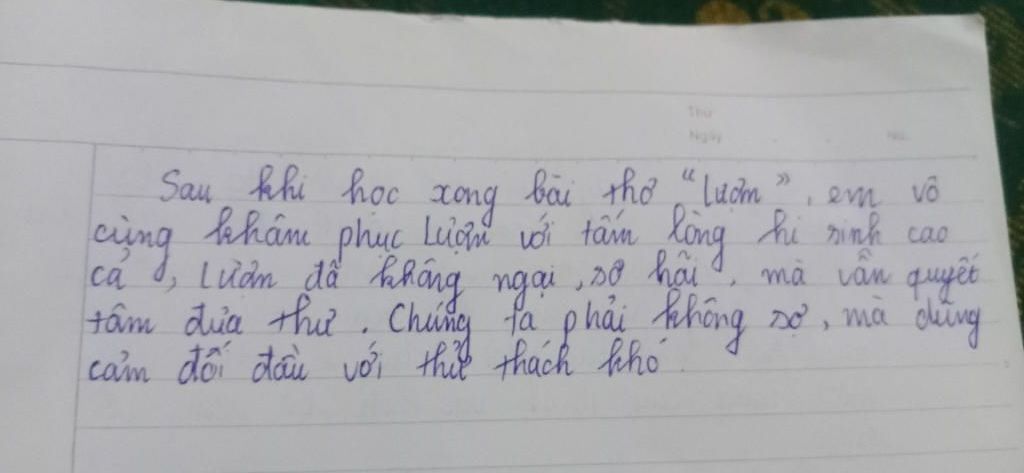 Thứ
Ngày No.
Sau khi học xong bài thơ "Lượm", em vô
cùng khâm phục Lượm với tấm lòng hi sinh cao
cả, Lượm đã không ngại, sợ hãi, mà vẫn quyết
tâm đưa thư. Chúng ta phải không sợ, mà dũng
cảm đối đầu với thử thách khó